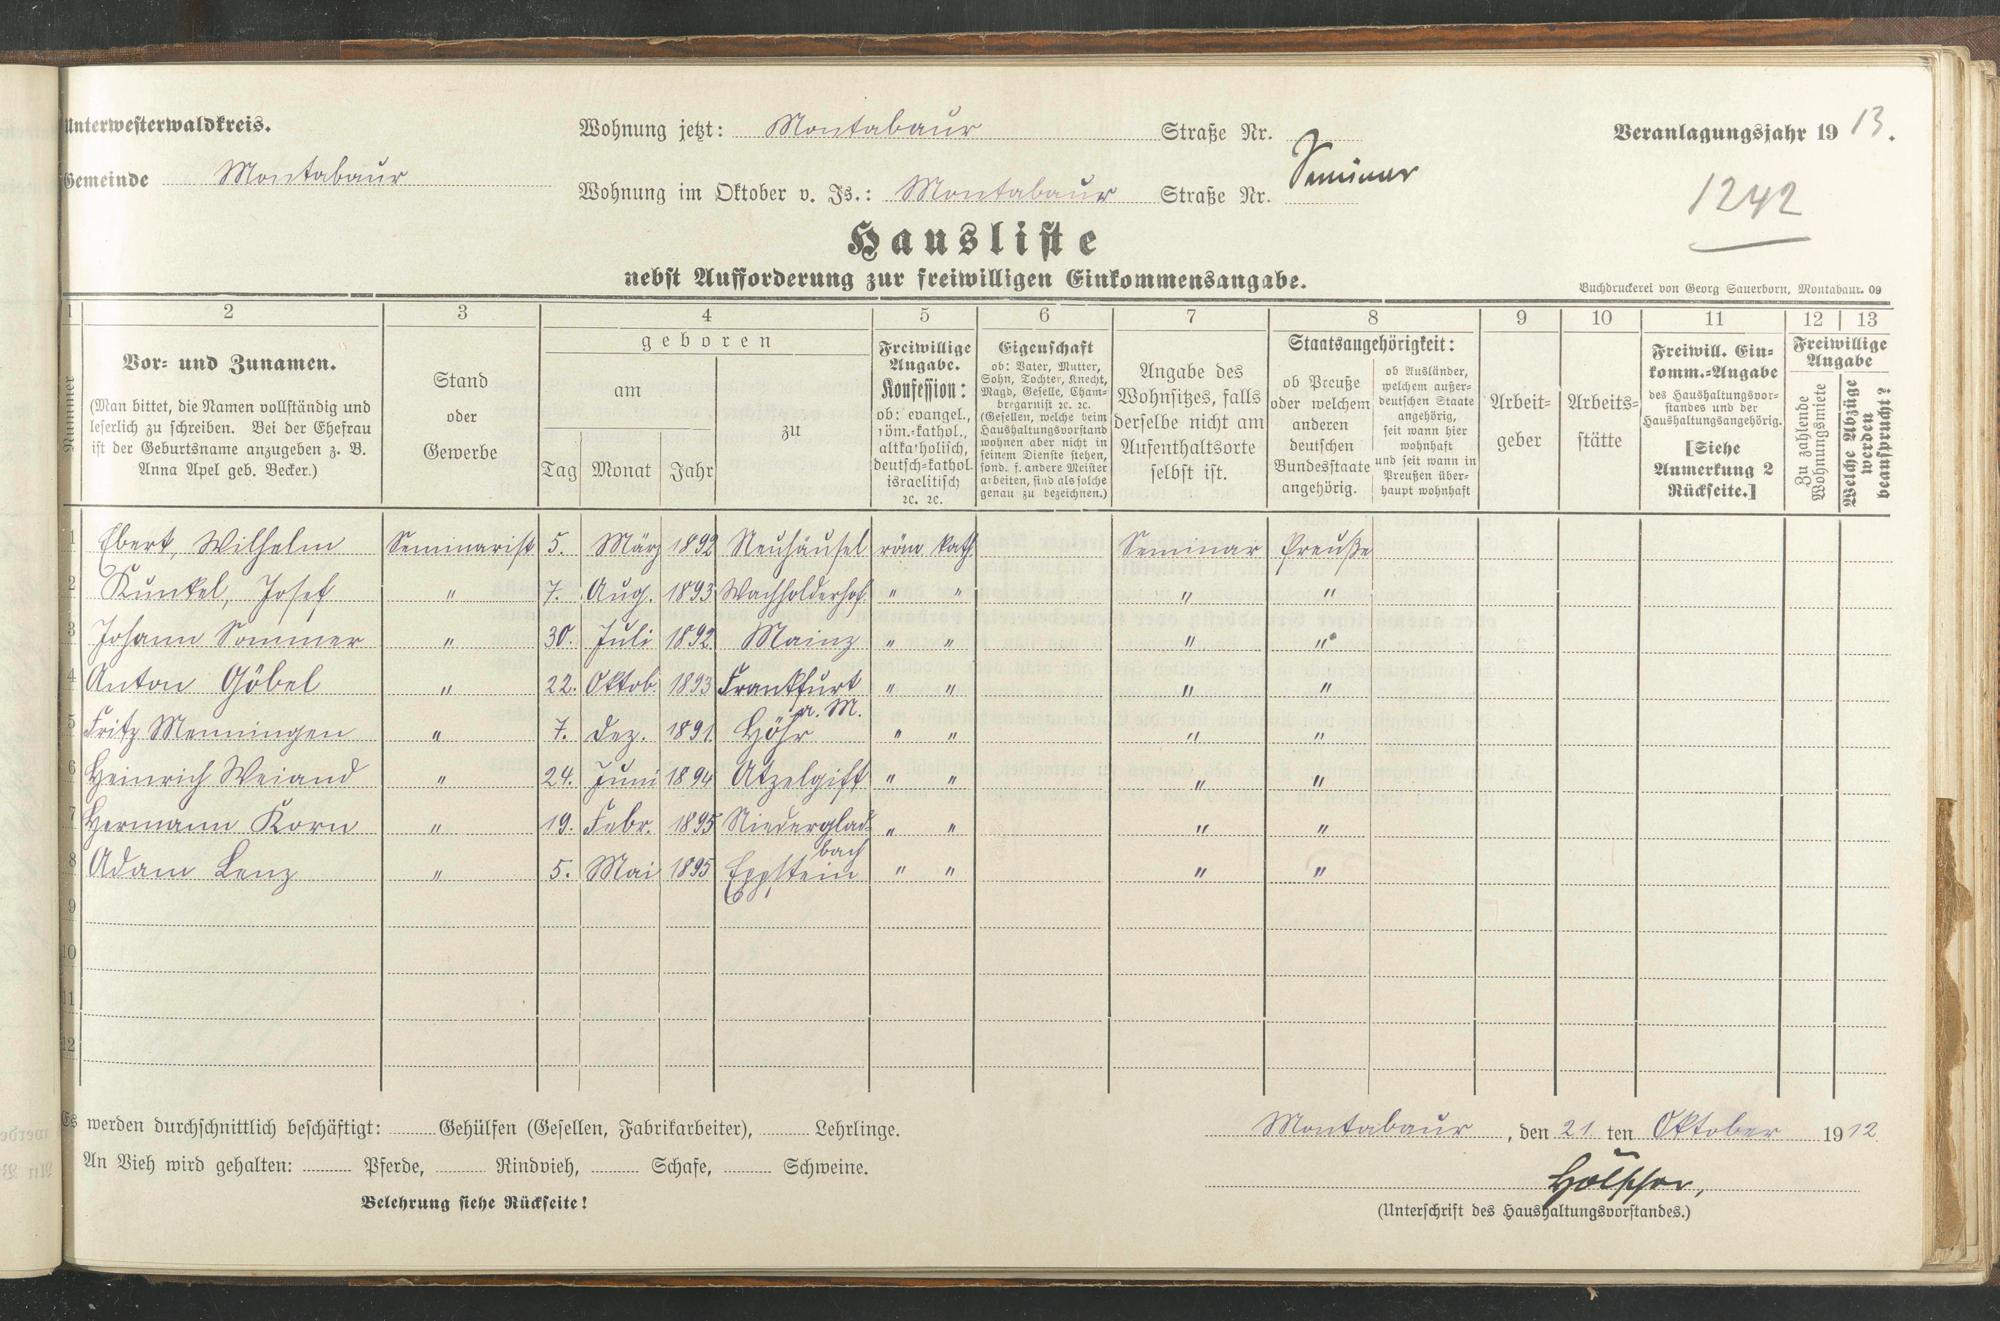 Unterwesterwaldkreis.
Wohnung jetzt: Montabaur Straße Nr.
Veranlagungsjahr 1913.
Gemeinde Montabaur
Wohnung im Oktober v. Js.: Montabaur Straße Nr. Seminar
1242
Hausliste
nebst Aufforderung zur freiwilligen Einkommensangabe.
Buchdruckerei von Georg Sauerborn, Montabaur. 09
1 2 3 4 5 6 7 8 9 10 11 12 13
Nummer
Vor- und Zunamen.
(Man bittet, die Namen vollständig und
leserlich zu schreiben. Bei der Ehefrau
ist der Geburtsname anzugeben z. B.
Anna Apel geb. Becker.)
Stand
oder
Gewerbe
geboren
am
Tag Monat Jahr
zu
Freiwillige
Angabe.
Konfession:
ob: evangel.,
röm.-kathol.,
altkatholisch,
deutsch-kathol.
israelitisch
2c. 2c.
Eigenschaft
ob: Vater, Mutter,
Sohn, Tochter, Knecht,
Magd, Geselle, Cham-
bregarnist 2c. 2c.
(Gesellen, welche beim
Haushaltungsvorstand
wohnen aber nicht in
seinem Dienste stehen,
sond. f. andere Meister
arbeiten, sind als solche
genau zu bezeichnen.)
Angabe des
Wohnsitzes, falls
derselbe nicht am
Aufenthaltsorte
selbst ist.
Staatsangehörigkeit:
ob Preuße
oder welchem
anderen
deutschen
Bundesstaate
angehörig.
ob Ausländer,
welchem außer-
deutschen Staate
angehörig,
seit wann hier
wohnhaft
und seit wann in
Preußen über-
haupt wohnhaft
Arbeit-
geber
Arbeits-
stätte
Freiwill. Ein-
komm.-Angabe
des Haushaltungsvor-
standes und der
Haushaltungsangehörig.
[Siehe
Anmerkung 2
Rückseite.]
Freiwillige
Angabe
Zu zahlende
Wohnungsmiete
Welche Abzüge
werden
beansprucht?
1 Ebert, Wilhelm Seminarist 5. März 1892 Neuhäusel röm kath Seminar Preuße
2 Kunkel, Josef " 7. Aug. 1893 Wachholderhof " " " "
3 Johann Sommer " 30. Juli 1892 Mainz " " " "
4 Anton Göbel " 22. Oktob. 1893 Frankfurt " " " "
a. M.
5 Fritz Menningen " 7. Dez. 1891 Höhr " " " "
6 Heinrich Weiand " 24. Juni 1894 Atzelgift " " " "
7 Hermann Korn " 19. Febr. 1895 Niederglad- " " " "
bach
8 Adam Lenz " 5. Mai 1895 Eppstein " " " "
9
10
11
12
Es werden durchschnittlich beschäftigt: Gehülfen (Gesellen, Fabrikarbeiter), Lehrlinge.
Montabaur, den 21 ten Oktober 1912
An Vieh wird gehalten: Pferde, Rindvieh, Schafe, Schweine.
Hölscher,
Belehrung siehe Rückseite!
(Unterschrift des Haushaltungsvorstandes.)